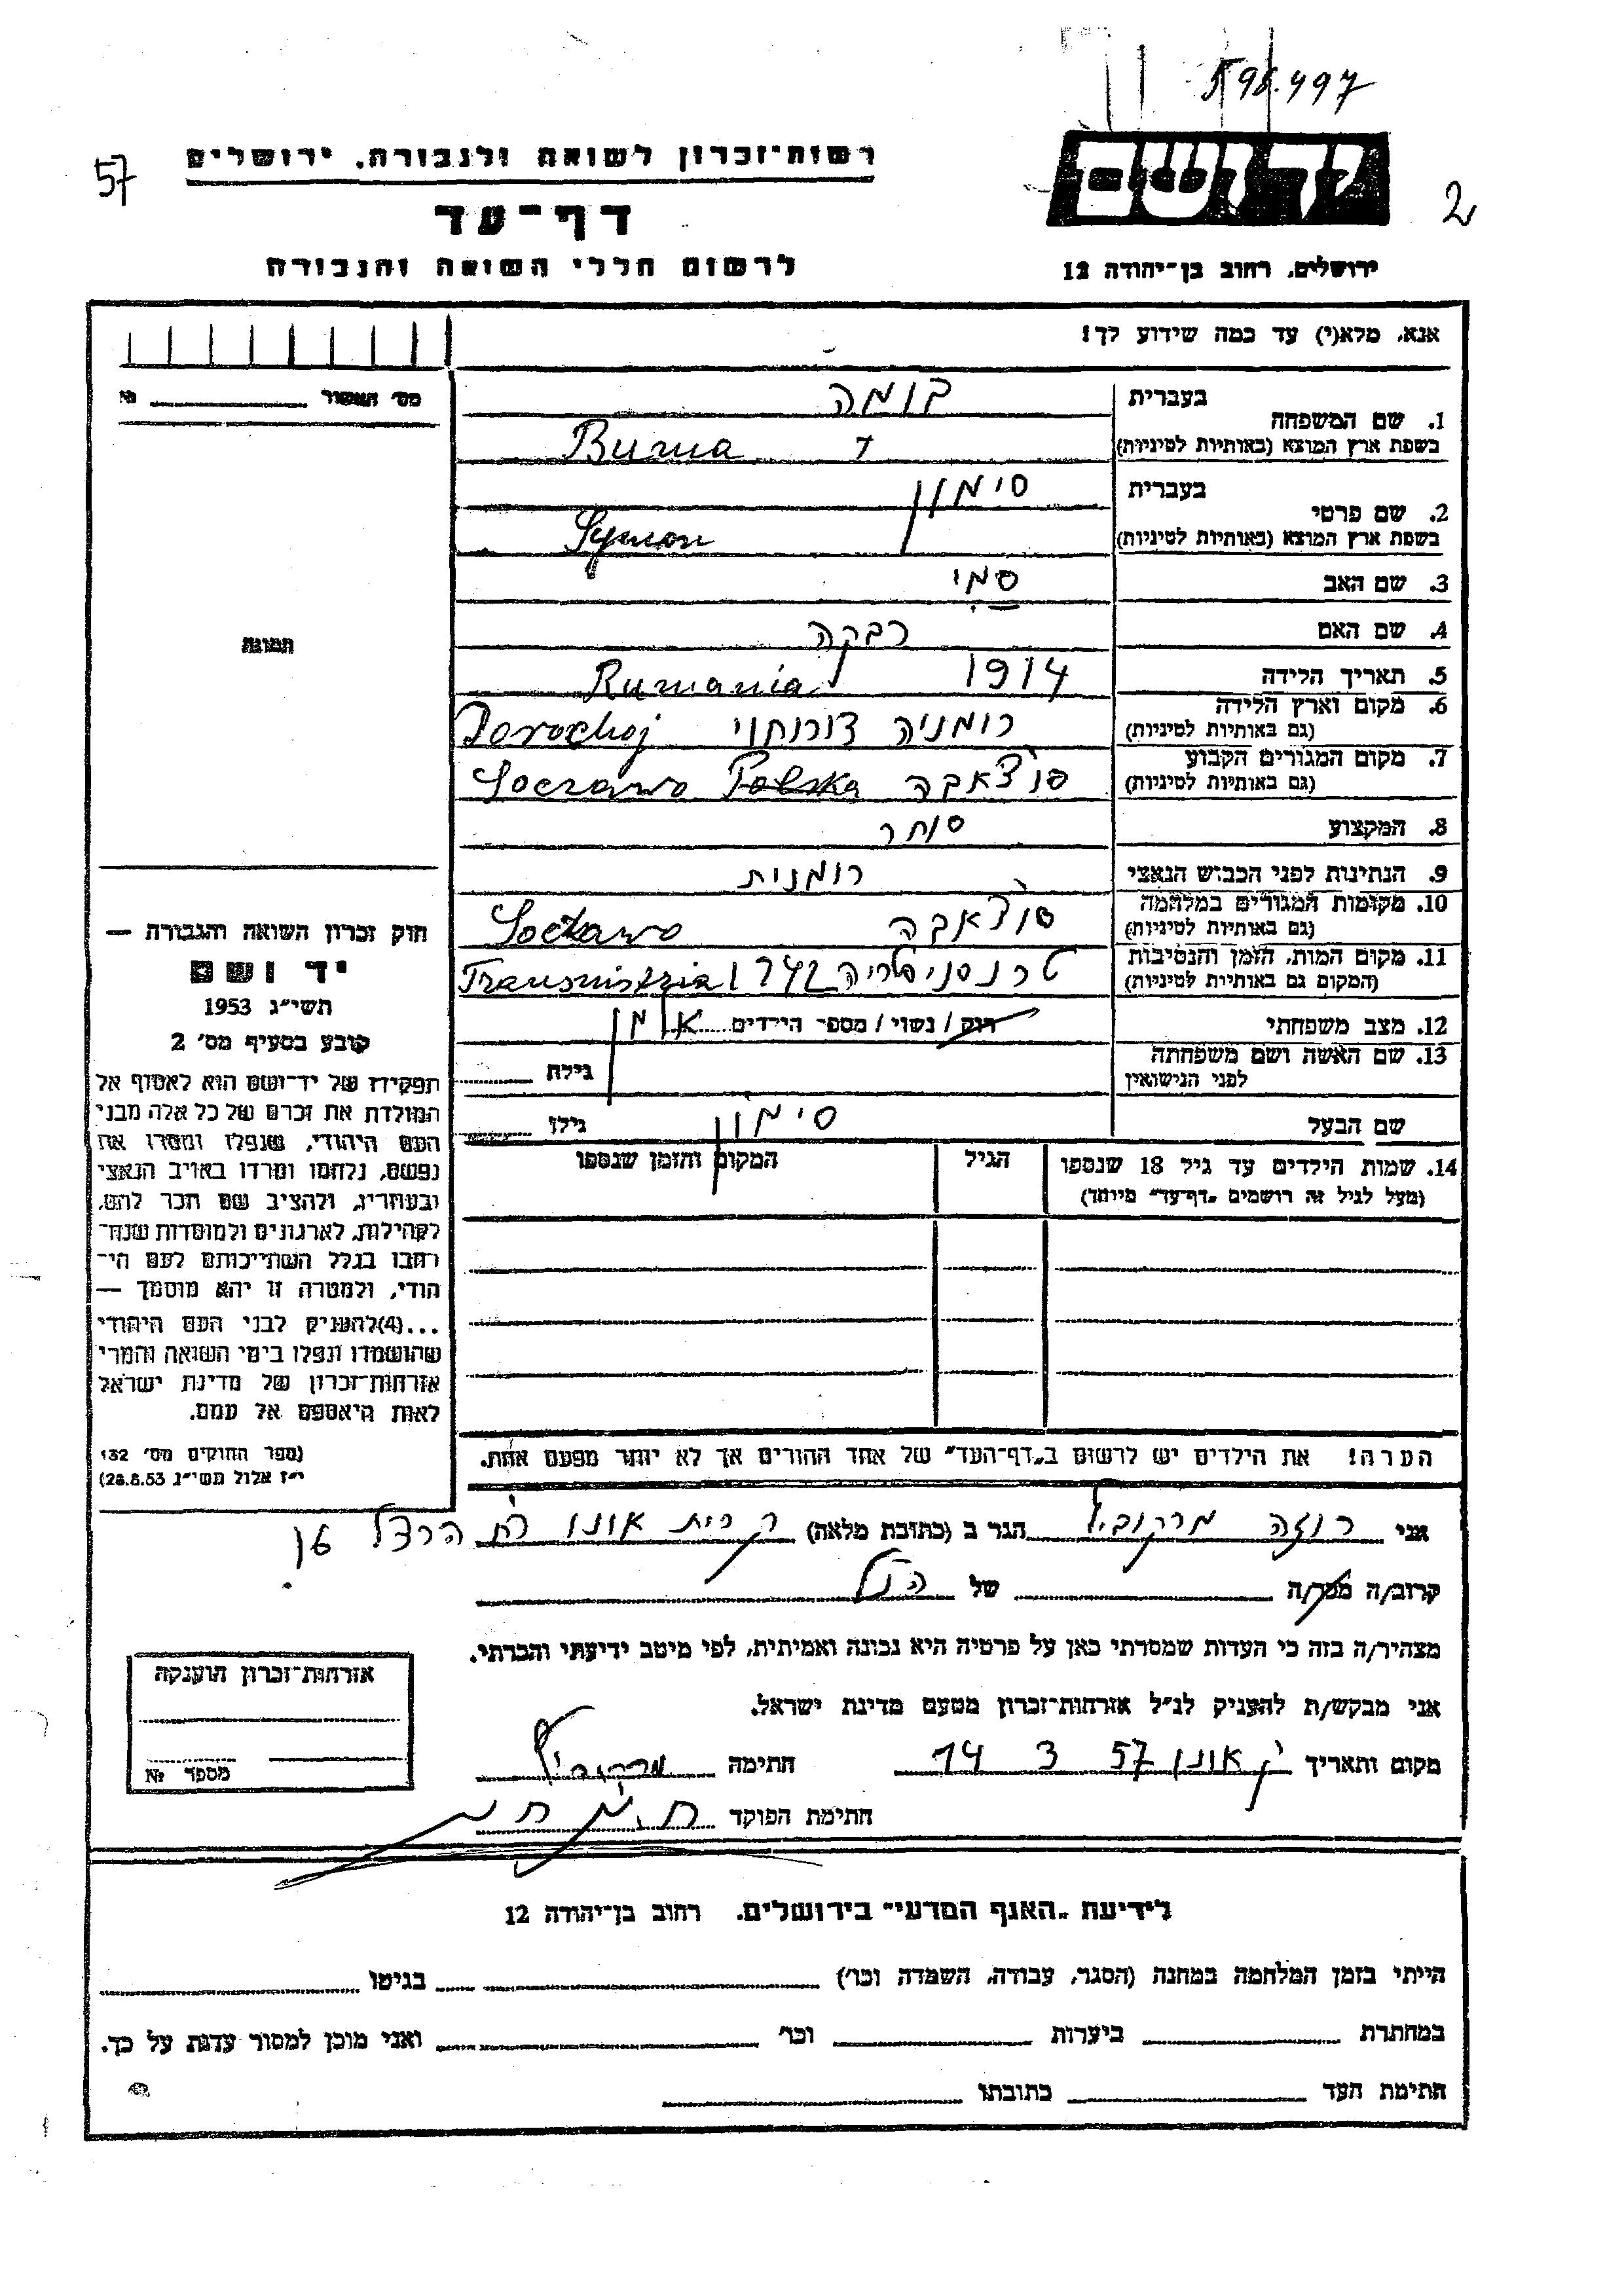 598.497
57
רשות־זכרון לשואה ולגבורה, ירושלים
יד ושם
2
דף־עד
לרשום חללי השואה והגבורה
ירושלים, רחוב בן־יהודה 12
אנא, מלא(י) עד כמה שידוע לך!
מס׳ האשור № 
1. שם המשפחה
בעברית בומה
בשפת ארץ המוצא (באותיות לטיניות) Buma
2. שם פרטי
בעברית סימון
בשפת ארץ המוצא (באותיות לטיניות) Symon
3. שם האב סמי
4. שם האם רבקה
תמונה
5. תאריך הלידה 1914 Rumania
6. מקום וארץ הלידה רומניה דורוחוי Dorochoj
(גם באותיות לטיניות)
7. מקום המגורים הקבוע סוצ'אבה Polska Soczawo
(גם באותיות לטיניות)
8. המקצוע סוחר
9. הנתינות לפני הכבוש הנאצי רומנית
10. מקומות המגורים במלחמה סוצ'אבה Soczawo
(גם באותיות לטיניות)
11. מקום המות, הזמן והנסיבות טרנסניסטריה 1942 Transnistria
(המקום גם באותיות לטיניות)
12. מצב משפחתי רוק / נשוי / מספר הילדים אין
13. שם האשה ושם משפחתה
לפני הנישואין
גילה
שם הבעל סימון גילו
14. שמות הילדים עד גיל 18 שנספו הגיל המקום והזמן שנספו
(מעל לגיל זה רושמים „דף־עד” מיוחד)
הערה! את הילדים יש לרשום ב„דף־העד” של אחד ההורים אך לא יותר מפעם אחת.
חוק זכרון השואה והגבורה —
יד ושם
תשי״ג 1953
קובע בסעיף מס׳ 2
תפקידו של יד־ושם הוא לאסוף אל
המולדת את זכרם של כל אלה מבני
העם היהודי, שנפלו ומסרו את
נפשם, נלחמו ומרדו באויב הנאצי
ובעוזריו, ולהציב שם וזכר להם,
לקהילות, לארגונים ולמוסדות שנח־
רבו בגלל השתייכותם לעם הי־
הודי, ולמטרה זו יהא מוסמך —
...(4)להעניק לבני העם היהודי
שהושמדו ונפלו בימי השואה והמרי
אזרחות־זכרון של מדינת ישראל
לאות היאספם אל עמם.
(ספר החוקים מס׳ 132
י״ז אלול תשי״ג 28.8.53)
אני רוזה מרקוביץ הגר ב (כתובת מלאה) קרית אונו רח הרצל
קרוב/ה מכר/ה של הנ"ל
מצהיר/ה בזה כי העדות שמסרתי כאן על פרטיה היא נכונה ואמיתית, לפי מיטב ידיעתי והכרתי.
אני מבקש/ת להעניק לנ״ל אזרחות־זכרון מטעם מדינת ישראל.
מקום ותאריך ק' אונו 14 3 57 חתימה מרקוביץ
חתימת הפוקד
אזרחות־זכרון הוענקה
מספר №
לידיעת „האגף המדעי” בירושלים, רחוב בן־יהודה 12
הייתי בזמן המלחמה במחנה (הסגר, עבודה, השמדה וכו׳) בגיטו
במחתרת ביערות וכו׳ ואני מוכן למסור עדות על כך.
חתימת העד כתובתו